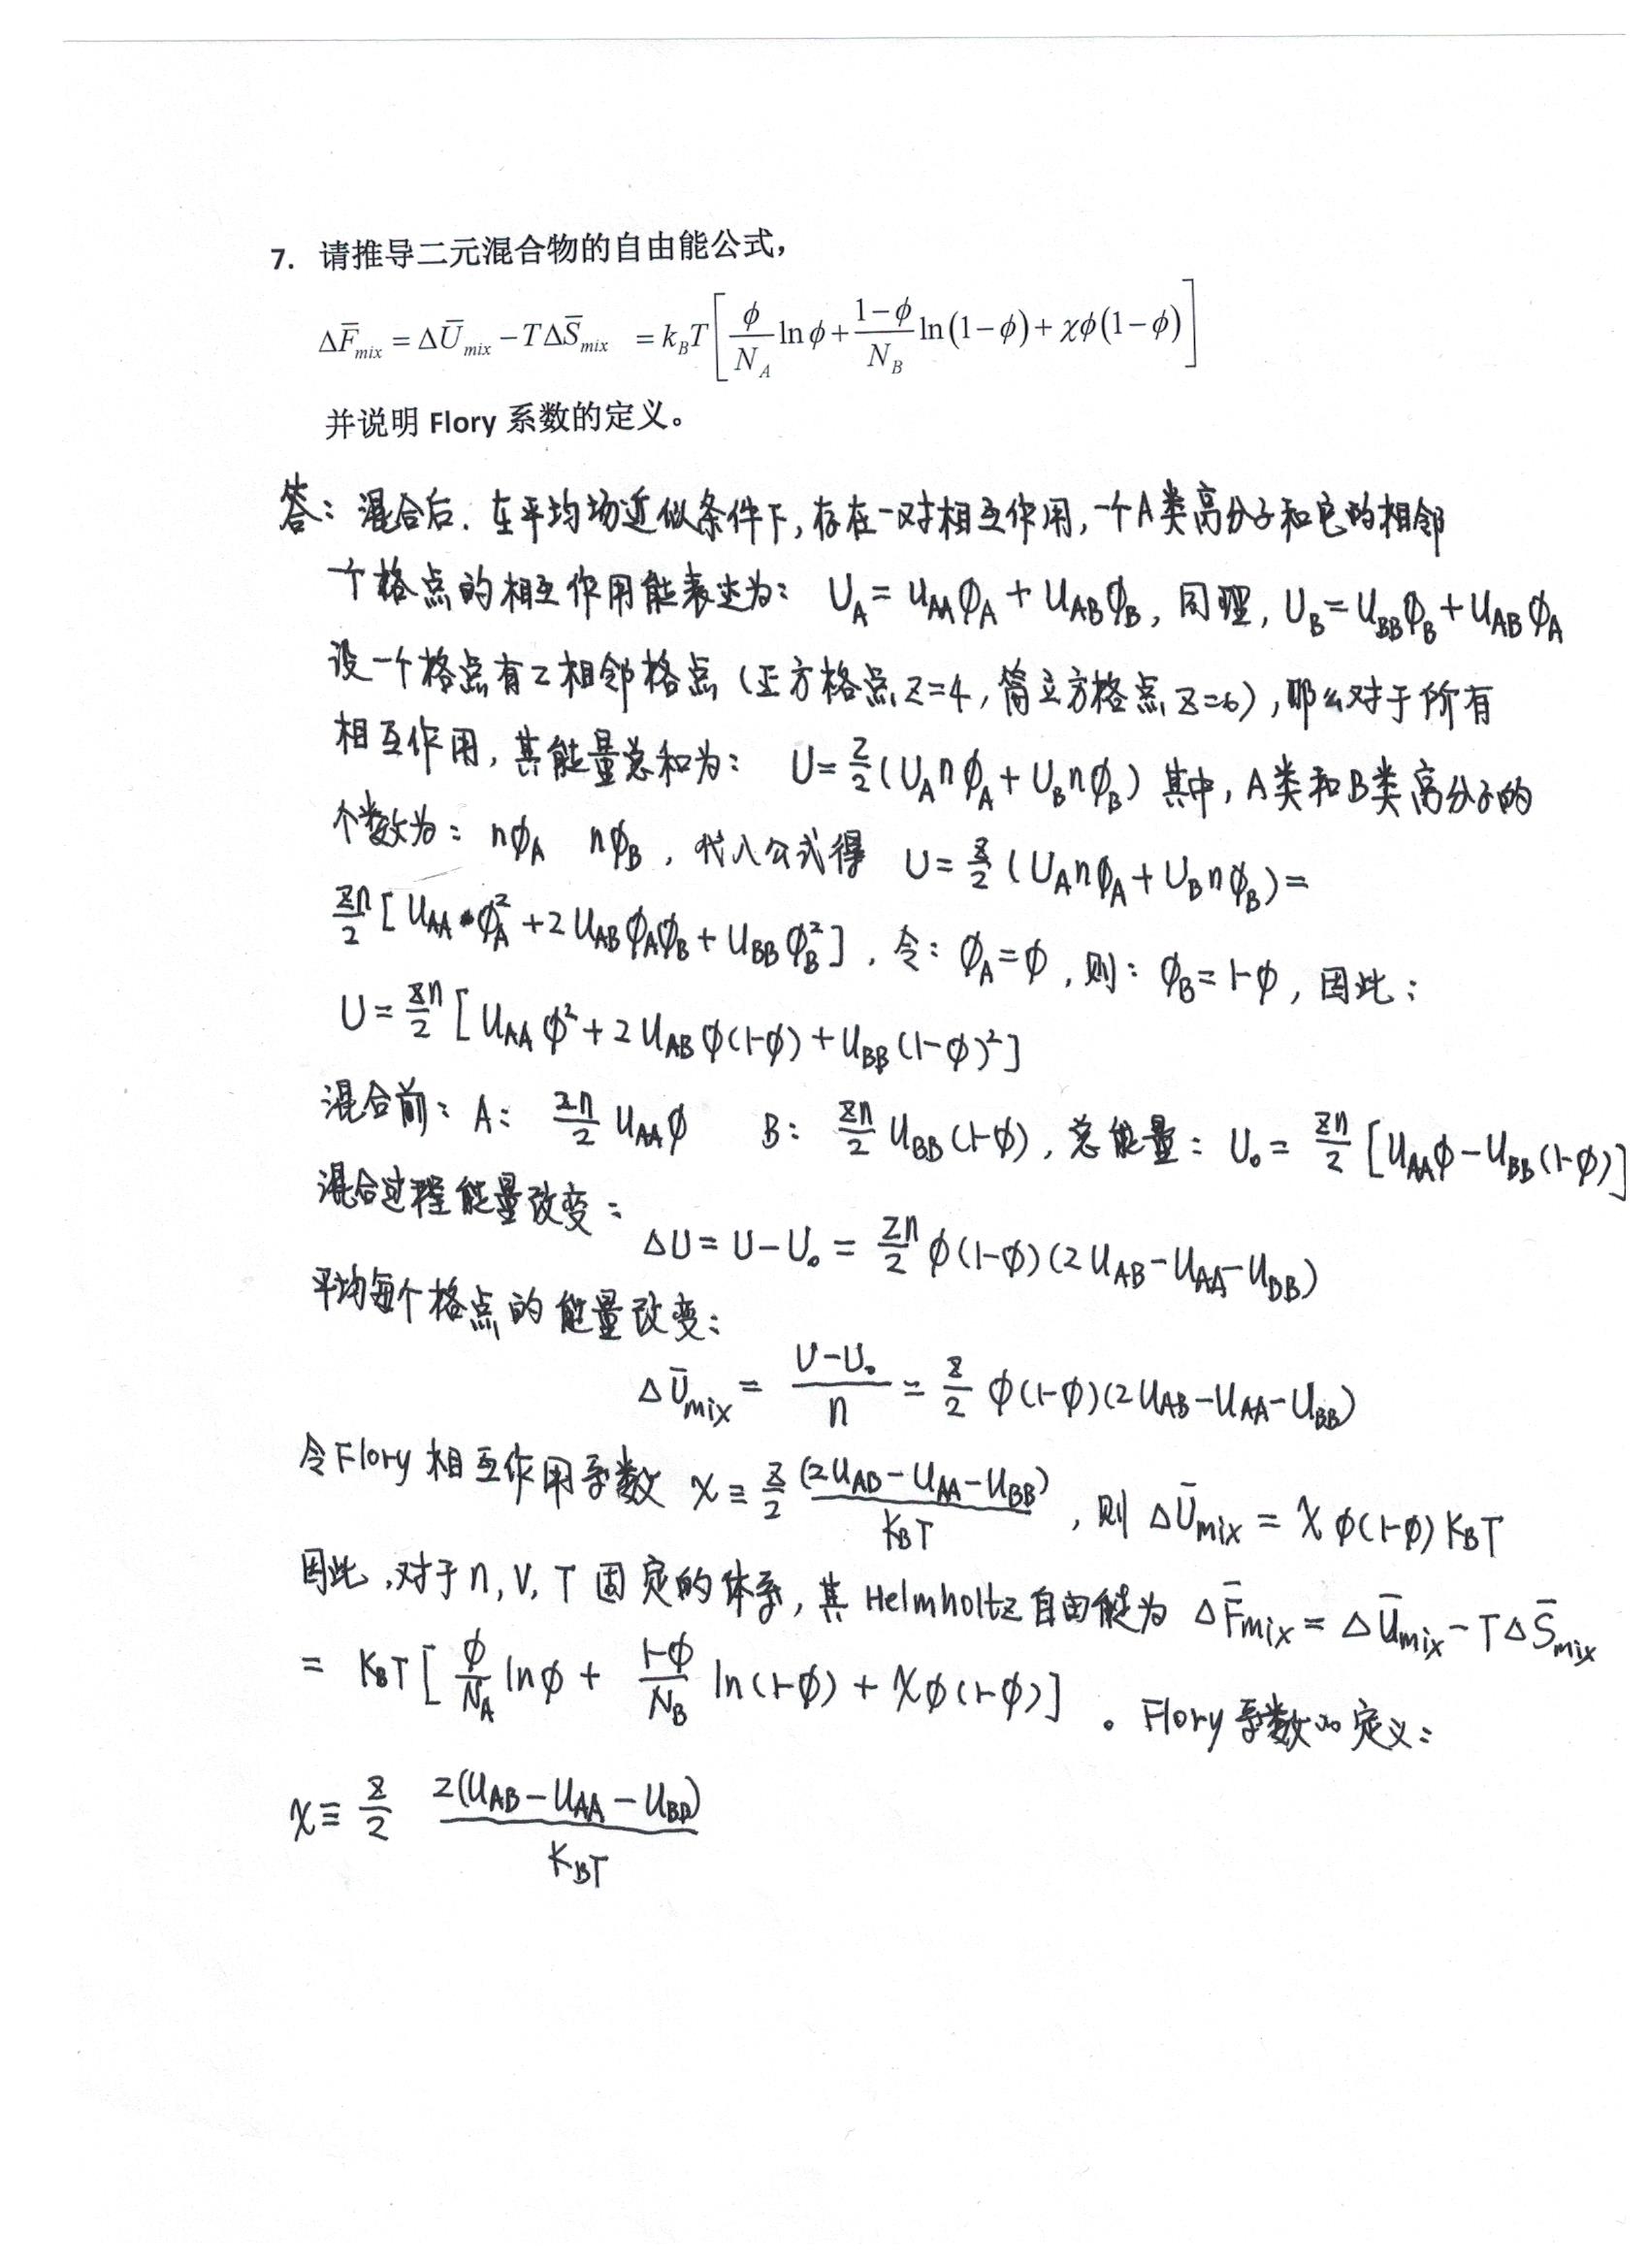 7. 请推导二元混合物的自由能公式,
ΔF̄_mix = ΔŪ_mix − TΔS̄_mix = k_BT[ϕ/N_A lnϕ + (1−ϕ)/N_B ln(1−ϕ) + χϕ(1−ϕ)]
并说明 Flory 系数的定义。
答: 混合后. 在平均场近似条件下, 存在一对相互作用, 一个A类高分子和它的相邻
一个格点的相互作用能表达为: U_A = U_AAϕ_A + U_ABϕ_B, 同理, U_B = U_BBϕ_B + U_ABϕ_A
设一个格点有z相邻格点 (正方格点z=4, 简立方格点z=6), 那么对于所有
相互作用, 其能量总和为: U = z/2 (U_A nϕ_A + U_B nϕ_B) 其中, A类和B类高分子的
个数为: nϕ_A nϕ_B, 代入公式得 U = z/2 (U_A nϕ_A + U_B nϕ_B) =
zn/2 [U_AA·ϕ_A² + 2U_ABϕ_Aϕ_B + U_BBϕ_B²], 令: ϕ_A = ϕ, 则: ϕ_B = 1−ϕ, 因此:
U = zn/2 [U_AAϕ² + 2U_ABϕ(1−ϕ) + U_BB(1−ϕ)²]
混合前: A: zn/2 U_AAϕ B: zn/2 U_BB(1−ϕ), 总能量: U₀ = zn/2 [U_AAϕ − U_BB(1−ϕ)]
混合过程能量改变:
ΔU = U − U₀ = zn/2 ϕ(1−ϕ)(2U_AB − U_AA − U_BB)
平均每个格点的能量改变:
ΔŪ_mix = (U − U₀)/n = z/2 ϕ(1−ϕ)(2U_AB − U_AA − U_BB)
令Flory相互作用系数 χ ≡ z/2 (2U_AB − U_AA − U_BB)/K_BT, 则 ΔŪ_mix = χϕ(1−ϕ)K_BT
因此, 对于n, V, T固定的体系, 其Helmholtz自由能为 ΔF̄_mix = ΔŪ_mix − TΔS̄_mix
= K_BT[ϕ/N_A lnϕ + (1−ϕ)/N_B ln(1−ϕ) + χϕ(1−ϕ)]。Flory系数的定义:
χ ≡ z/2 2(U_AB − U_AA − U_BB)/K_BT